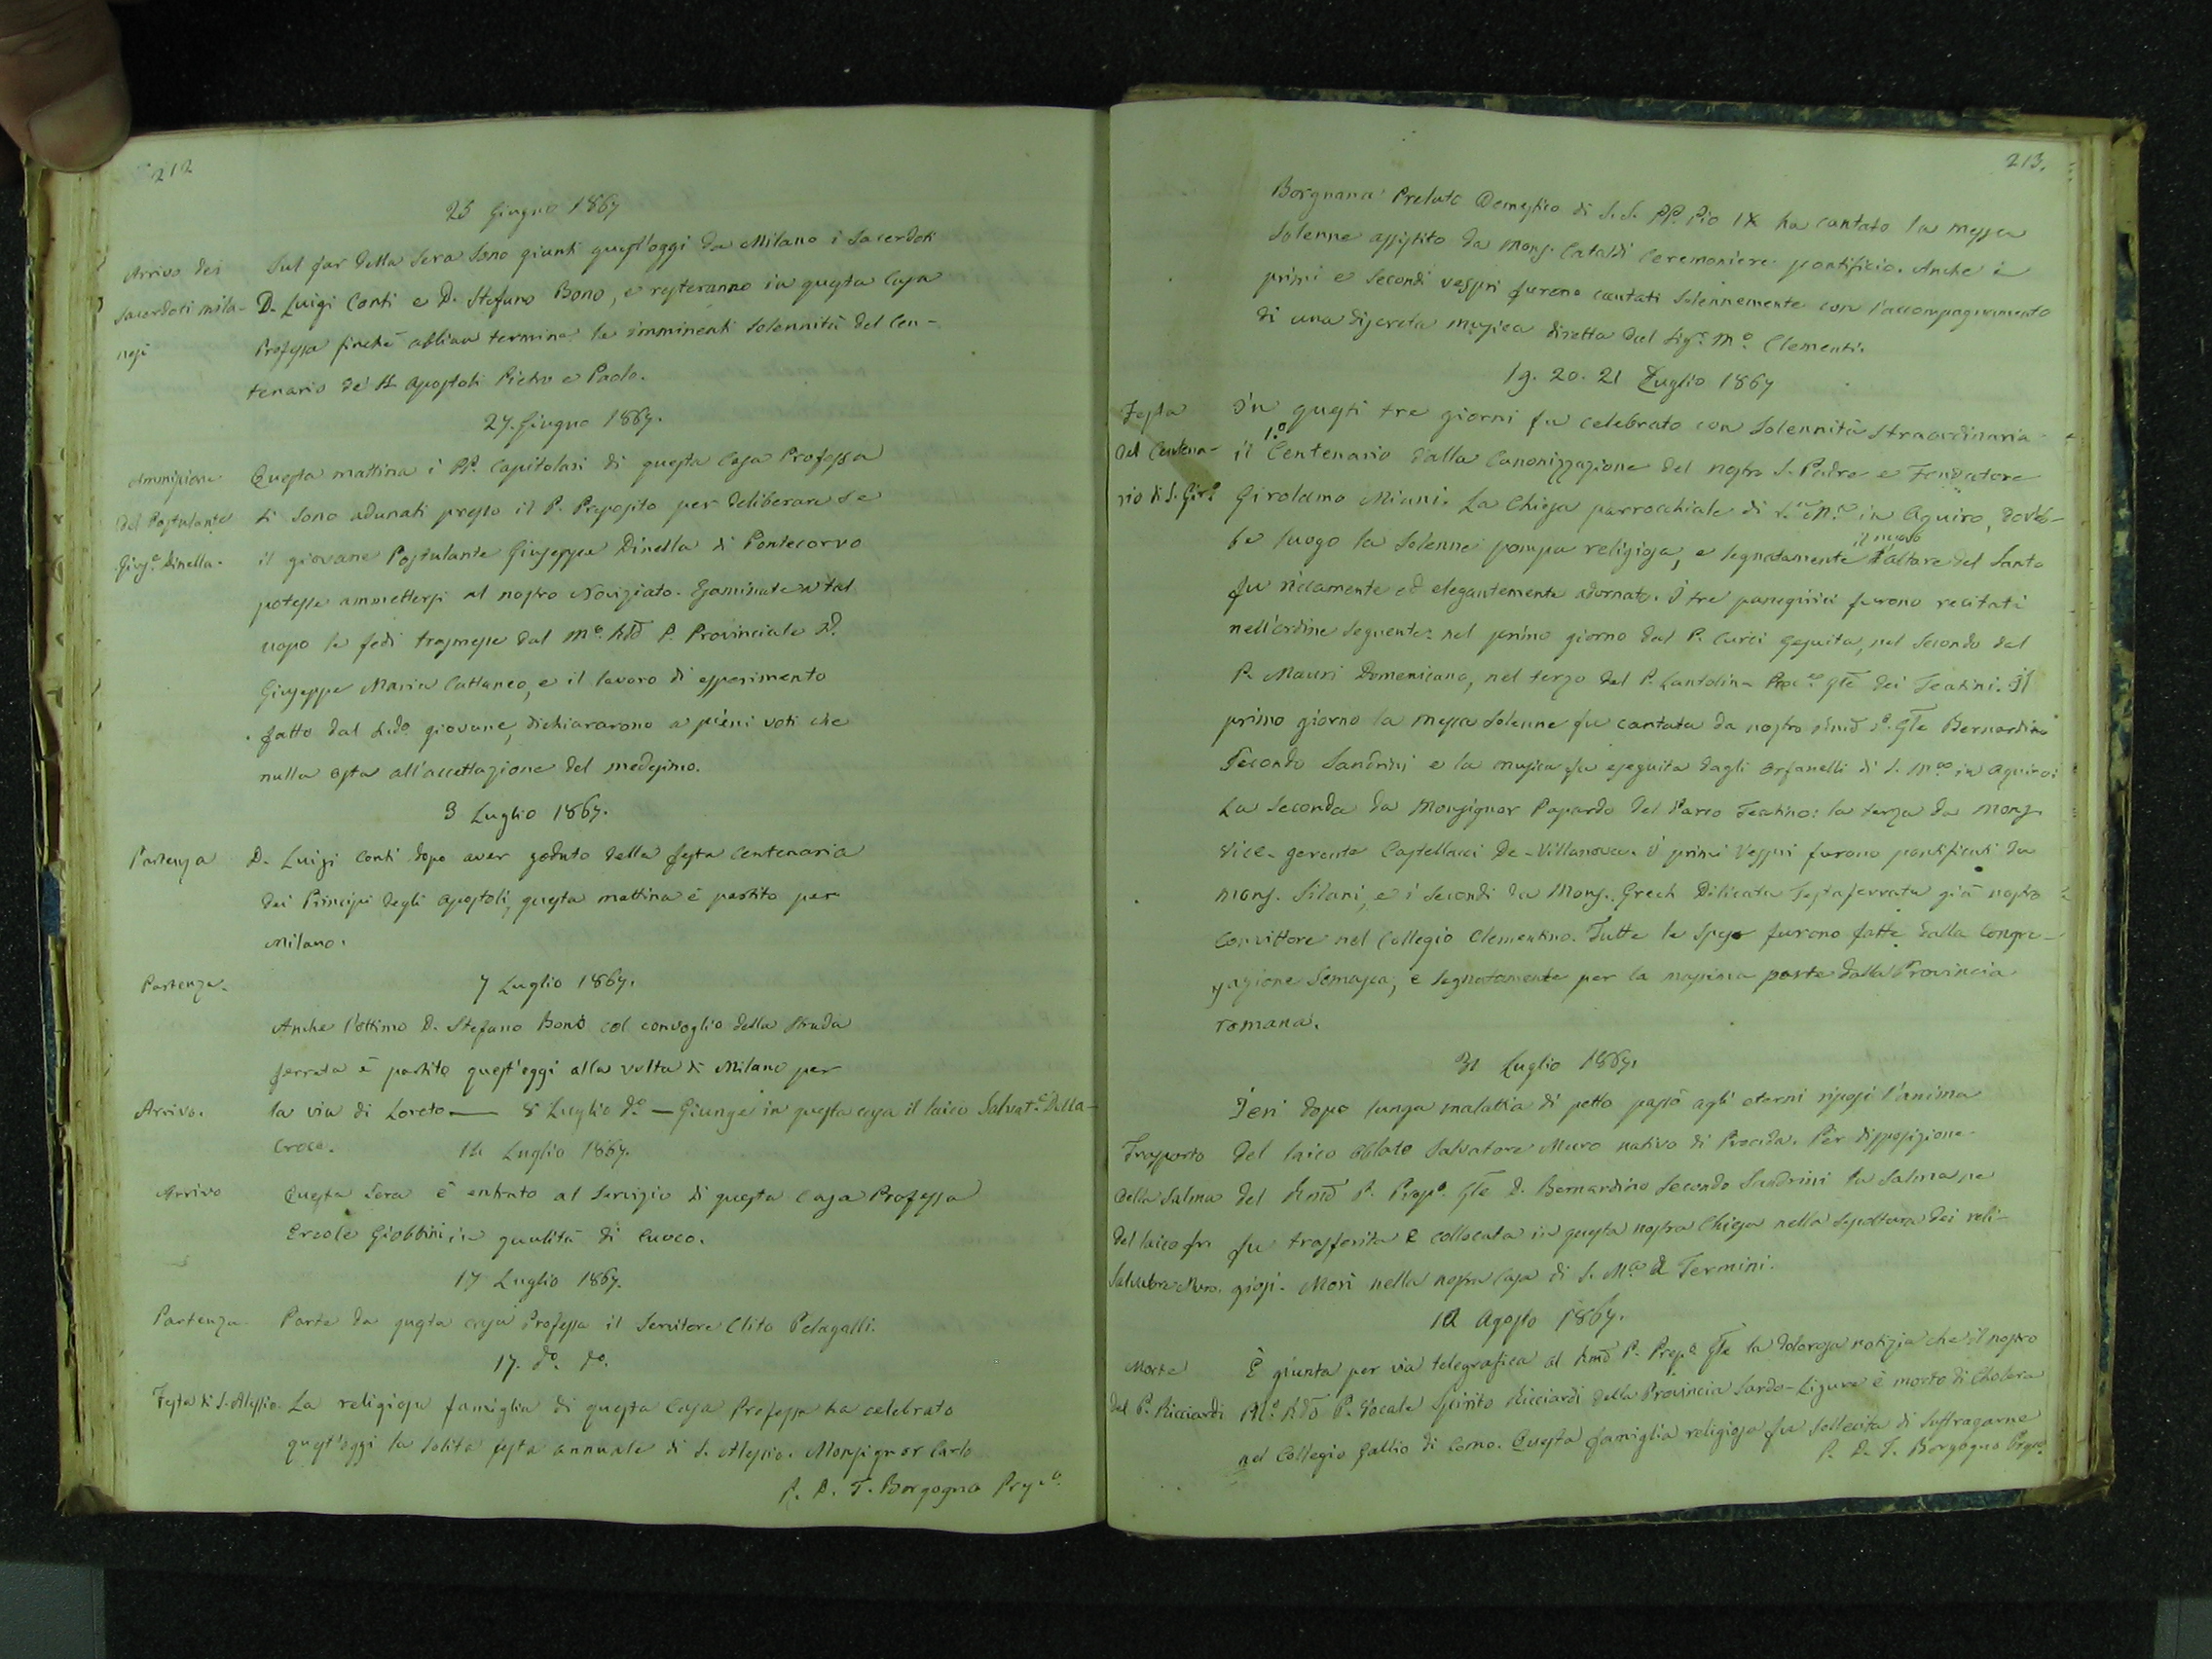 212
25 Giugno 1867
Arrivo dei
Sacerdoti mila-
nesi
Sul far della sera sono giunti quest'oggi da Milano i Sacerdoti
D. Luigi Conti e D. Stefano Bono, e resteranno in questa Casa
Professa finchè abbian termine le imminenti solennità del Cen-
tenario de' SS. Apostoli Pietro e Paolo.
27. Giugno 1867.
Ammissione
del Postulante
Gius.e Dinella.
Questa mattina i PP. Capitolari di questa Casa Professa
si sono adunati presso il P. Preposito per deliberare se
il giovane Postulante Giuseppe Dinella di Pontecorvo
potesse ammettersi al nostro Noviziato. Esaminate a tal
uopo le fedi trasmesse dal M.o Rdo P. Provinciale D.
Giuseppe Maria Cattaneo, e il lavoro di esperimento
fatto dal giovane, dichiararono a pieni voti che
nulla osta all'accettazione del medesimo.
3 Luglio 1867.
Partenza
D. Luigi Conti dopo aver goduto della festa Centenaria
dei Principi degli Apostoli, questa mattina è partito per
Milano.
Partenza.
7 Luglio 1867.
Anche l'ottimo D. Stefano Bono col convoglio della strada
ferrata è partito quest'oggi alla volta di Milano per
Arrivo.
la via di Loreto — 8 Luglio d.o — Giunge in questa casa il laico Salvat.e Della-
Croce.
14 Luglio 1867.
Arrivo
Questa sera è entrato al servizio di questa Casa Professa
Ercole Giobbini in qualità di Cuoco.
17 Luglio 1867.
Partenza
Parte da questa casa Professa il Servitore Clito Pelagalli.
17. d.o d.o
Festa di S. Alessio.
La religiosa famiglia di questa Casa Professa ha celebrato
quest'oggi la solita festa annuale di S. Alessio. Monsignor Carlo
P. D. T. Borgogno Prep.o
213.
Borgnana Prelato Domestico di S. S. PP. Pio IX ha cantato la messa
solenne assistito da Mons. Cataldi Ceremoniere pontificio. Anche i
primi e secondi vespri furono cantati solennemente con l'accompagnamento
di una discreta musica diretta dal Sig.r M.o Clementi.
19. 20. 21 Luglio 1867
Festa
del Centena-
rio di S. Gir.o
In questi tre giorni fu celebrato con solennità straordinaria
il 1.o Centenario dalla Canonizzazione del nostro S. Padre e Fondatore
Girolamo Miani. La Chiesa parrocchiale di S.ta M.a in Aquiro, dov'eb-
be luogo la solenne pompa religiosa, e segnatamente il nuovo altare del Santo
fu riccamente ed elegantemente adornato. I tre panegirici furono recitati
nell'ordine seguente: nel primo giorno dal P. Curci Gesuita, nel secondo dal
P. Mauri Domenicano, nel terzo dal P. Lantolina Proc.e Gle dei Teatini. Il
primo giorno la messa solenne fu cantata da nostro Rmo P. Gle Bernardino
Secondo Sandrini e la musica fu eseguita dagli orfanelli di S. M.a in Aquiro:
la seconda da Monsignor Papardo del Parco Teatino: la terza da Mons.
Vice-gerente Castellacci De-Villanova. I primi Vespri furono pontificati da
mons. Silani, e i secondi da Mons. Grech Dilicata Testaferrata già nostro
Convittore nel Collegio Clementino. Tutte le spese furono fatte dalla Congre-
gazione Somasca, e segnatamente per la massima parte dalla Provincia
romana.
31 Luglio 1867.
Trasporto
della Salma
del laico fr.
Salvatore Muro.
Ieri dopo lunga malattia di petto passò agli eterni riposi l'anima
del laico oblato Salvatore Muro nativo di Procida. Per disposizione
del Rmo P. Prep.o Gle D. Bernardino Secondo Sandrini la salma ne
fu trasferita e collocata in questa nostra Chiesa nella sepoltura dei reli-
giosi. Morì nella nostra Casa di S. M.a a Termini.
12 Agosto 1867.
Morte
del P. Ricciardi
È giunta per via telegrafica al Rmo P. Prep.o Gle la dolorosa notizia che il nostro
M.o Rdo P. Vocale Spirito Ricciardi della Provincia Sardo-Ligure è morto di Cholera
nel Collegio Gallio di Como. Questa famiglia religiosa fu sollecita di suffragarne
P. D. T. Borgogno Prep.o